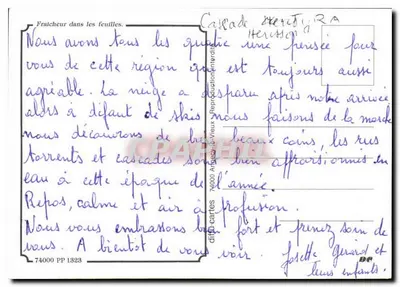 Fraicheur dans les feuilles.
Cascade
Nous avons tous les quatre une pensée pour
vous de cette région qui est toujours aussi
agréable. La neige a disparu après notre arrivée
alors à défaut de skis nous faisons de la marche
nous découvrons de beaux coins, les rus
torrents et cascades sont bien approvisionnés en
eau à cette époque de l'année.
Repos, calme et air à profusion.
Nous vous embrassons bien fort et prenez soin de
vous. A bientot de vous voir. Josette Gérard et
leurs enfants.
74000 PP 1323